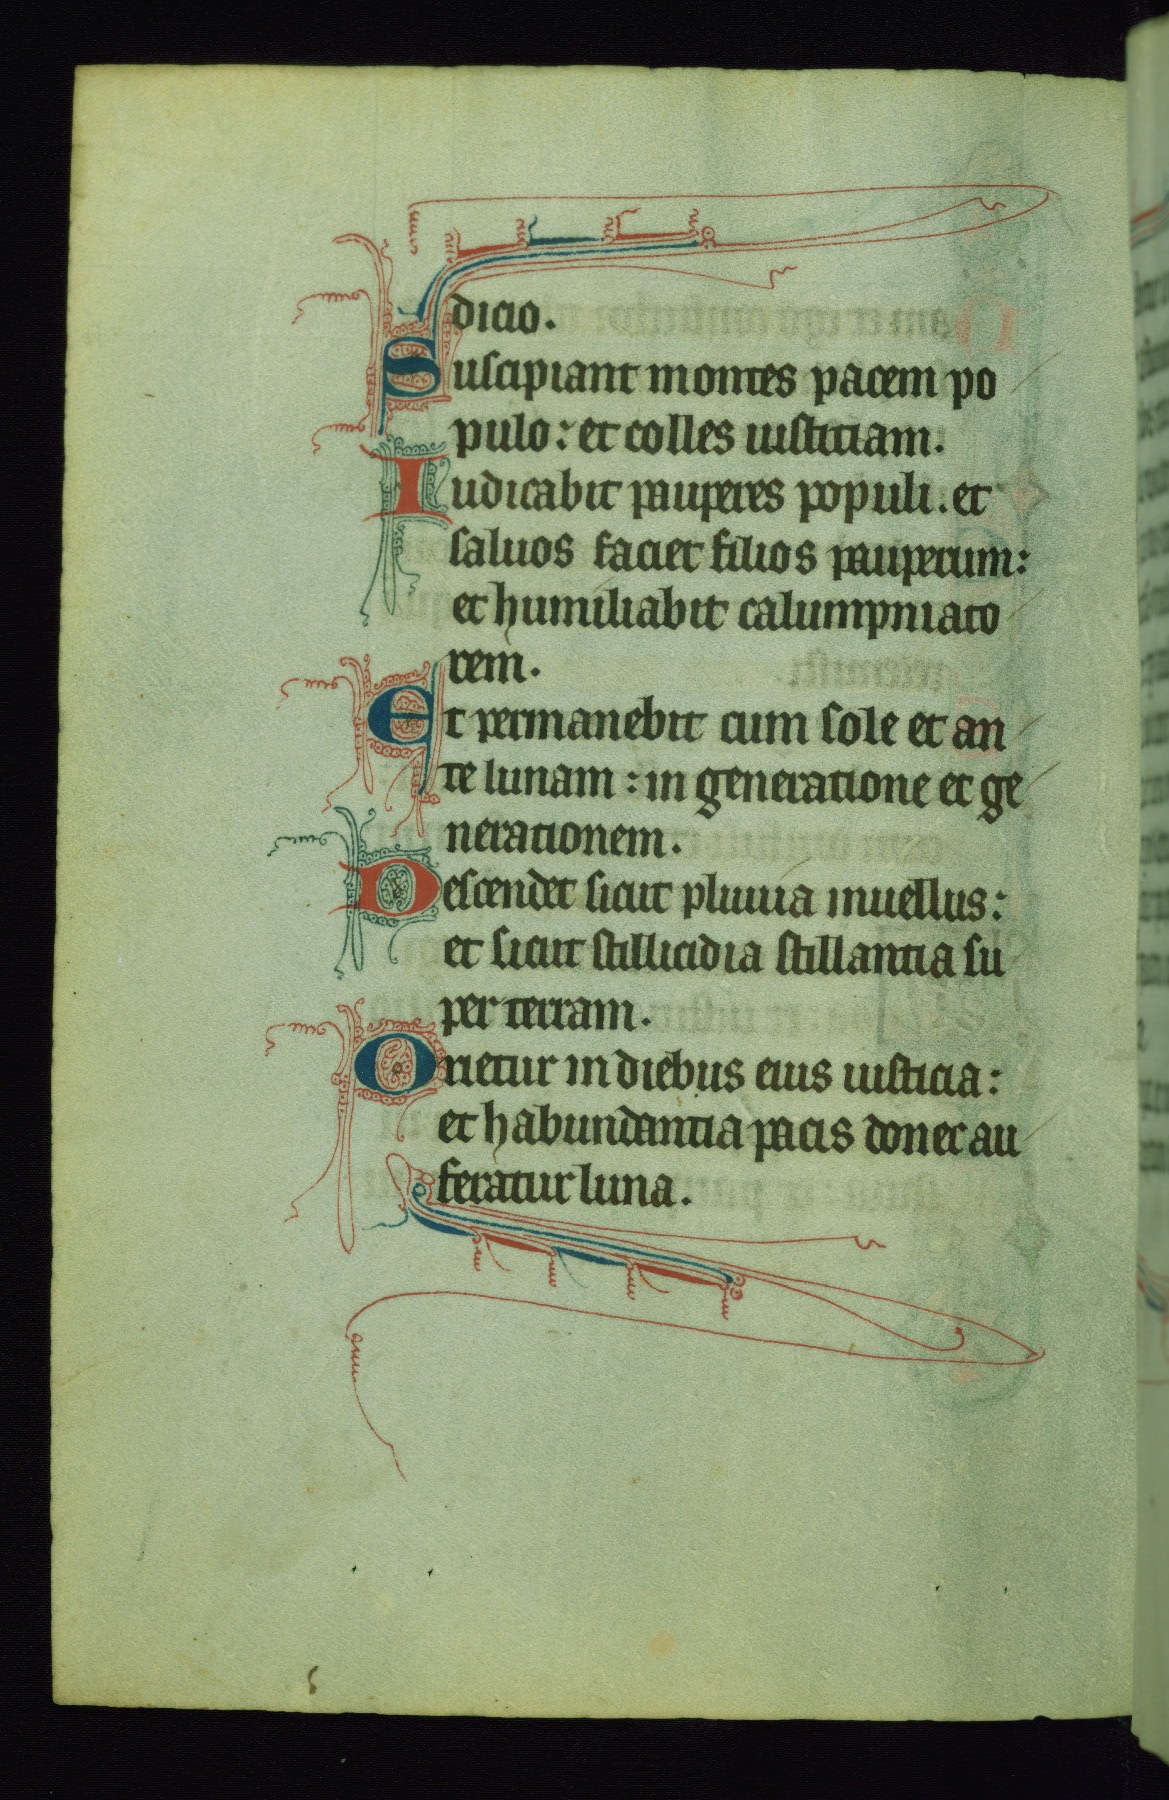 dicio.
Suscipiant montes pacem po
pulo: et colles iusticiam.
Iudicabit pauperes populi. et
saluos faciet filios pauperum:
et humiliabit calumpniato
rem.
Et permanebit cum sole et an
te lunam: in generatione et ge
nerationem.
Descendet sicut pluuia in uellus:
et sicut stillicidia stillantia su
per terram.
Orietur in diebus eius iusticia:
et habundantia pacis donec au
feratur luna.